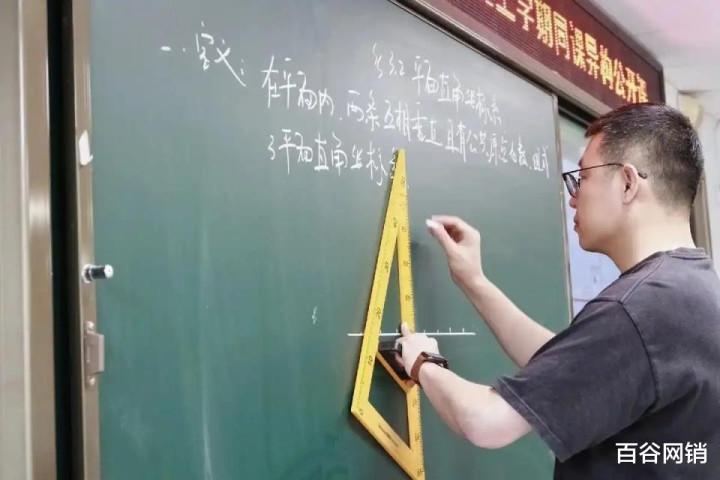 上学期同课异构公开课
§3.2 平面直角坐标系
一、定义：
在平面内,两条互相垂直且有公共原点的数轴,组成
了平面直角坐标系
百谷网销